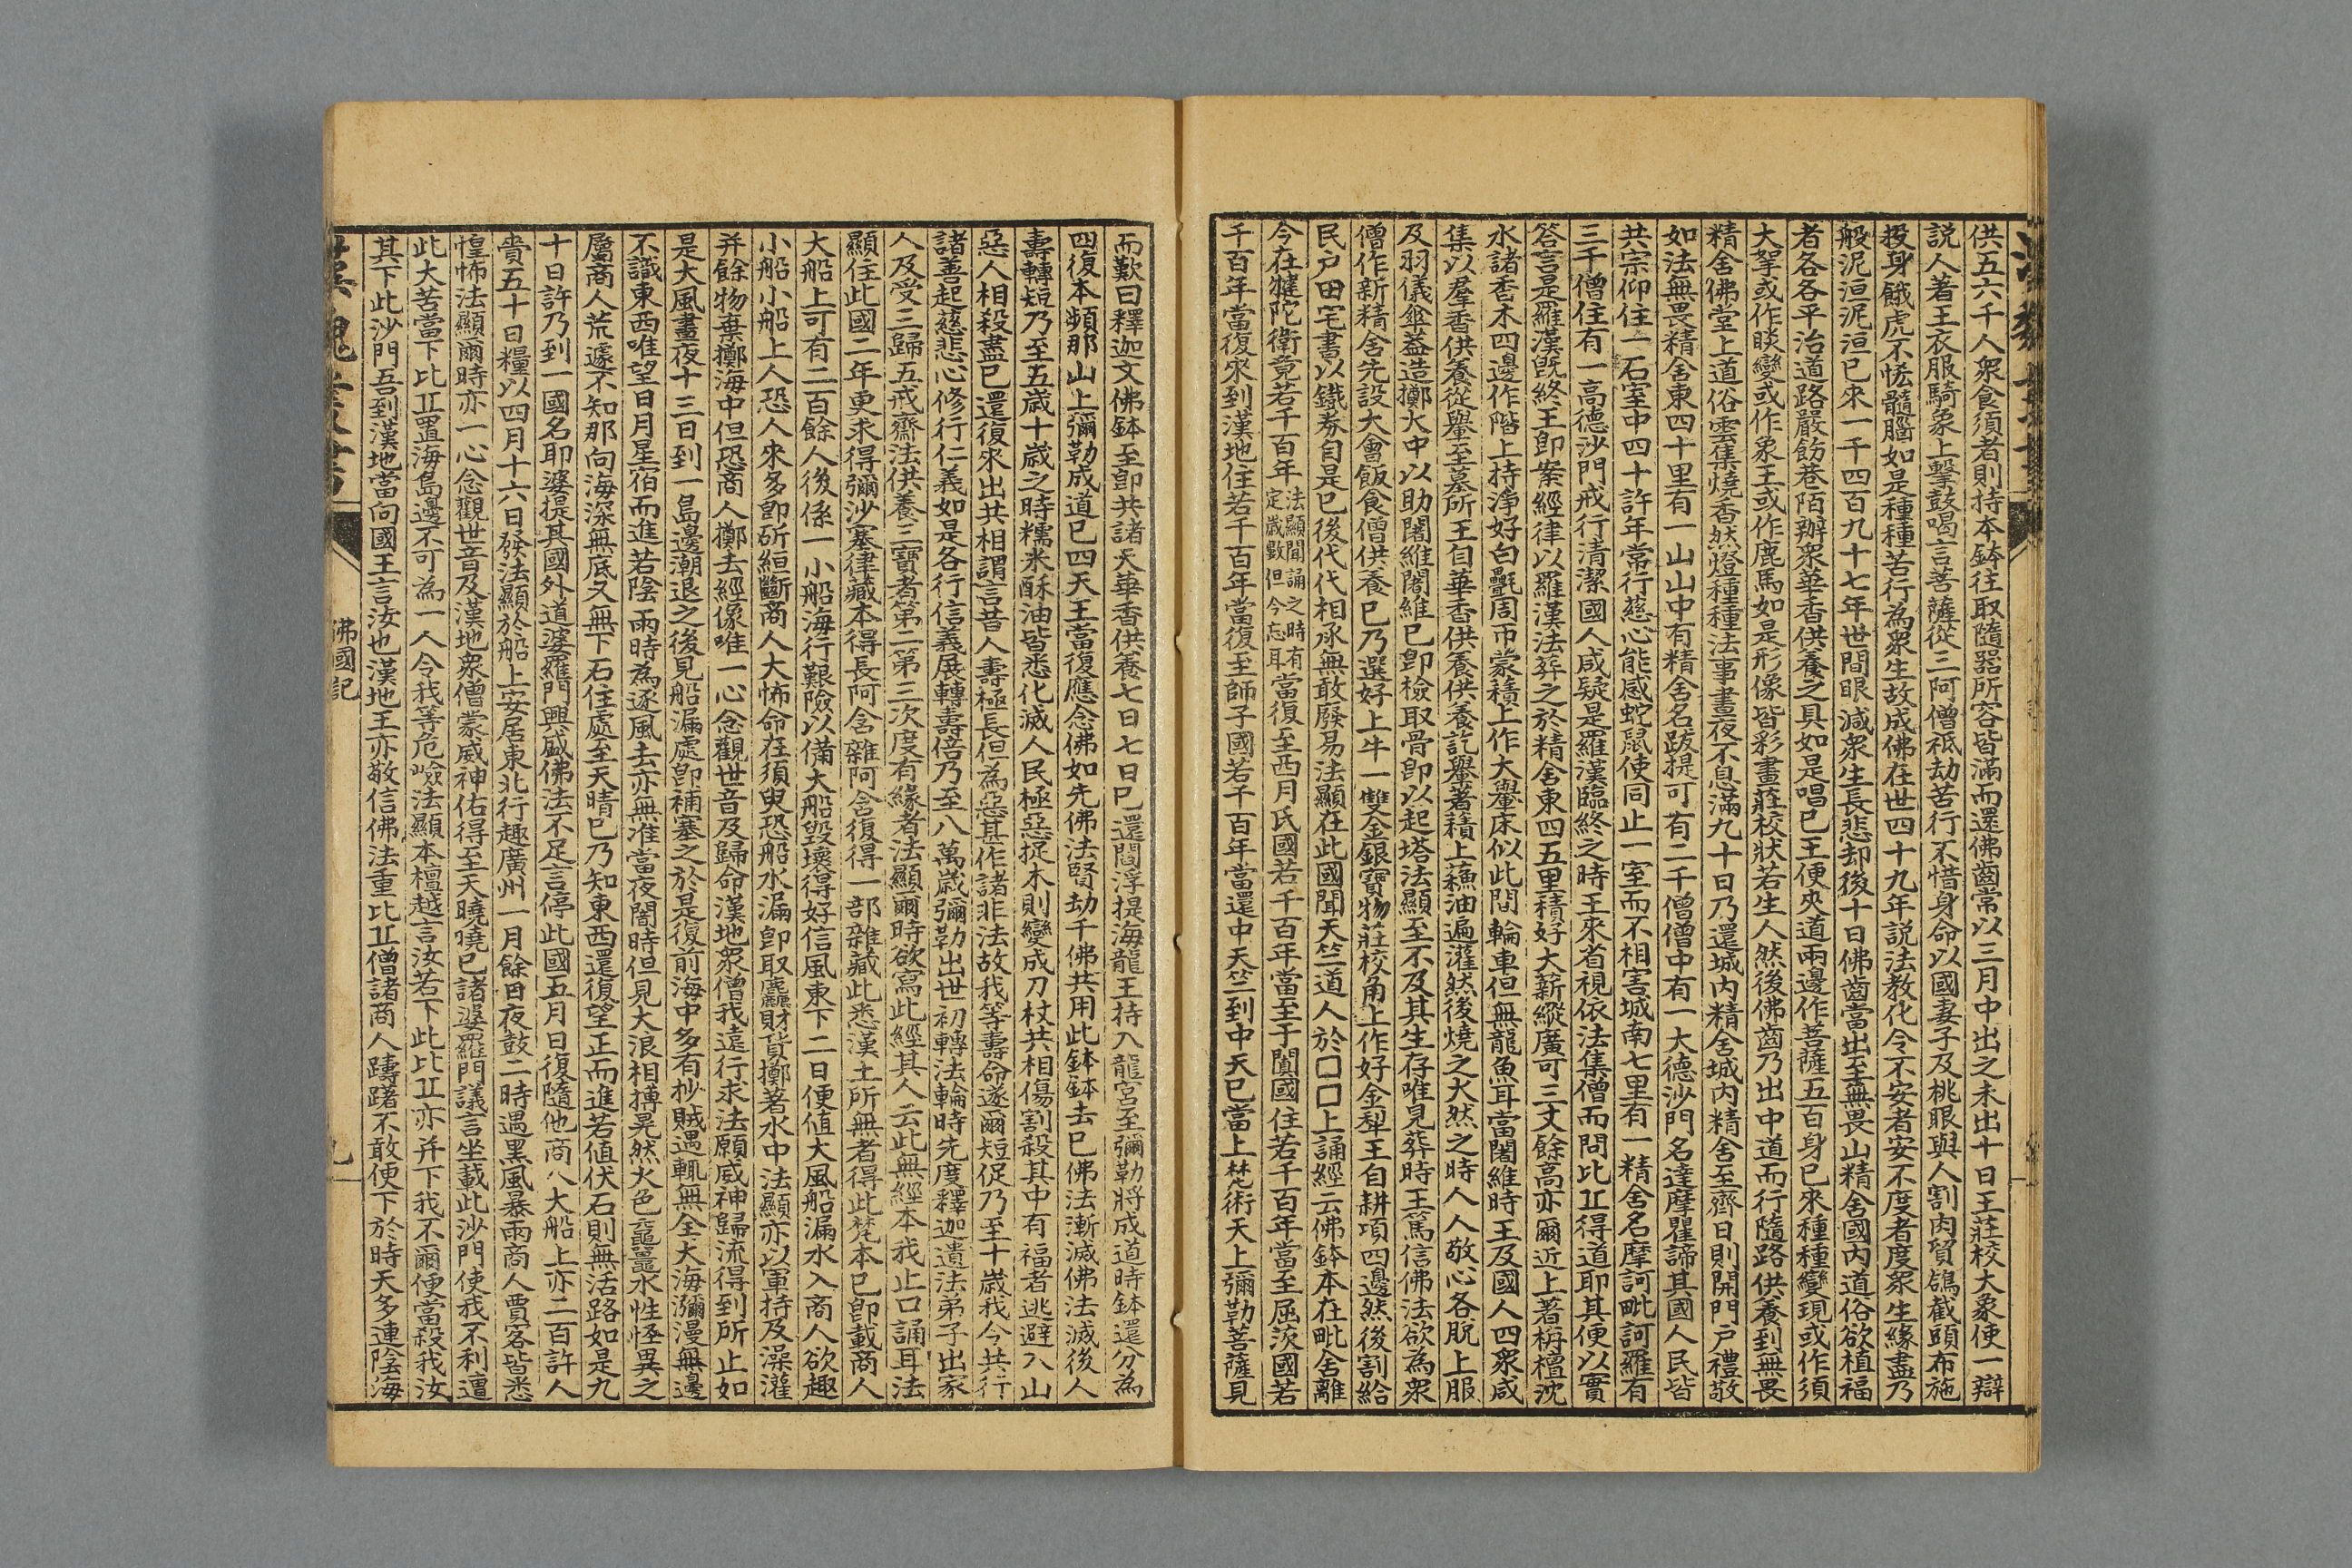 供五六千人衆食須者則持本鉢往取隨器所容皆滿而還佛齒常以三月中出之未出十日王莊校大象使一辯
説人著王衣服騎象上擊鼓喝言菩薩從三阿僧祗劫苦行不惜身命以國妻子及桃眼與人割肉貿鴿截頭布施
投身餓虎不恡髓腦如是種種苦行為衆生故成佛在世四十九年説法教化令不安者安不度者度衆生緣盡乃
般泥洹泥洹已來一千四百九十七年世間眼減衆生長悲却後十日佛齒當出至無畏山精舍國内道俗欲植福
者各各平治道路嚴飭巷陌辦衆華香供養之具如是唱已王便夾道兩邊作菩薩五百身已來種種變現或作須
大拏或作睒變或作象王或作鹿馬如是形像皆彩畫莊校狀若生人然後佛齒乃出中道而行隨路供養到無畏
精舍佛堂上道俗雲集燒香然燈種種法事晝夜不息滿九十日乃還城内精舍城内精舍至齋日則開門戸禮敬
如法無畏精舍東四十里有一山山中有精舍名跋提可有二千僧僧中有一大德沙門名達摩瞿諦其國人民皆
共宗仰住一石室中四十許年常行慈心能感蛇鼠使同止一室而不相害城南七里有一精舍名摩訶毗訶羅有
三千僧住有一高德沙門戒行清潔國人咸疑是羅漢臨終之時王來省視依法集僧而問比丘得道耶其便以實
答言是羅漢既終王即案經律以羅漢法葬之於精舍東四五里積好大薪縱廣可三丈餘高亦爾近上著栴檀沈
水諸香木四邊作階上持淨好白㲲周帀蒙積上作大轝床似此間輪車但無龍魚耳當闍維時王及國人四衆咸
集以羣香供養從轝至墓所王自華香供養供養訖轝著積上蘓油遍灌然後燒之火然之時人人敬心各脱上服
及羽儀傘蓋遥擲火中以助闍維闍維已即檢取骨即以起塔法顯至不及其生存唯見葬時王篤信佛法欲為衆
僧作新精舍先設大會飯食僧供養已乃選好上牛一雙金銀寶物莊校角上作好金犁王自耕項四邊然後割給
民戸田宅書以鐵券自是已後代代相承無敢廢易法顯在此國聞天竺道人於囗囗上誦經云佛鉢本在毗舍離
今在犍陀衛竟若千百年法顯聞誦之時有定歲數但今忘耳當復至西月氏國若千百年當至于闐國住若千百年當至屈茨國若
千百年當復來到漢地住若千百年當復至師子國若千百年當還中天竺到中天已當上梵術天上彌勒菩薩見
而歎曰釋迦文佛鉢至即共諸天華香供養七日七日已還閻浮提海龍王持入龍宮至彌勒將成道時鉢還分為
四復本頻那山上彌勒成道已四天王當復應念佛如先佛法賢劫千佛共用此鉢鉢去已佛法漸滅佛法滅後人
壽轉短乃至五歲十歲之時糯米酥油皆悉化滅人民極惡捉木則變成刀杖共相傷割殺其中有福者逃避入山
惡人相殺盡已還復來出共相謂言昔人壽極長但為惡甚作諸非法故我等壽命遂爾短促乃至十歲我今共行
諸善起慈悲心修行仁義如是各行信義展轉壽倍乃至八萬歲彌勒出世初轉法輪時先度釋迦遺法弟子出家
人及受三歸五戒齋法供養三寶者第二第三次度有緣者法顯爾時欲寫此經其人云此無經本我止口誦耳法
顯住此國二年更求得彌沙塞律藏本得長阿含雜阿含復得一部雜藏此悉漢土所無者得此梵本已即載商人
大船上可有二百餘人後係一小船海行艱險以備大船毀壞得好信風東下二日便值大風船漏水入商人欲趣
小船小船上人恐人來多即斫絙斷商人大怖命在須臾恐船水漏即取麤財貨擲著水中法顯亦以軍持及澡灌
并餘物棄擲海中但恐商人擲去經像唯一心念觀世音及歸命漢地衆僧我遠行求法願威神歸流得到所止如
是大風晝夜十三日到一島邊潮退之後見船漏處即補塞之於是復前海中多有抄賊遇輒無全大海瀰漫無邊
不識東西唯望日月星宿而進若陰雨時為逐風去亦無准當夜闇時但見大浪相搏晃然火色黿鼉水性怪異之
屬商人荒遽不知那向海深無底又無下石住處至天晴已乃知東西還復望正而進若值伏石則無活路如是九
十日許乃到一國名耶婆提其國外道婆羅門興盛佛法不足言停此國五月日復隨他商人大船上亦二百許人
賫五十日糧以四月十六日發法顯於船上安居東北行趣廣州一月餘日夜鼓二時遇黑風暴雨商人賈客皆悉
惶怖法顯爾時亦一心念觀世音及漢地衆僧蒙威神佑得至天曉曉已諸婆羅門議言坐載此沙門使我不利遭
此大苦當下比丘置海島邊不可為一人令我等危嶮法顯本檀越言汝若下此比丘亦并下我不爾便當殺我汝
其下此沙門吾到漢地當向國王言汝也漢地王亦敬信佛法重比丘僧諸商人躊躇不敢便下於時天多連陰海
佛國記
九